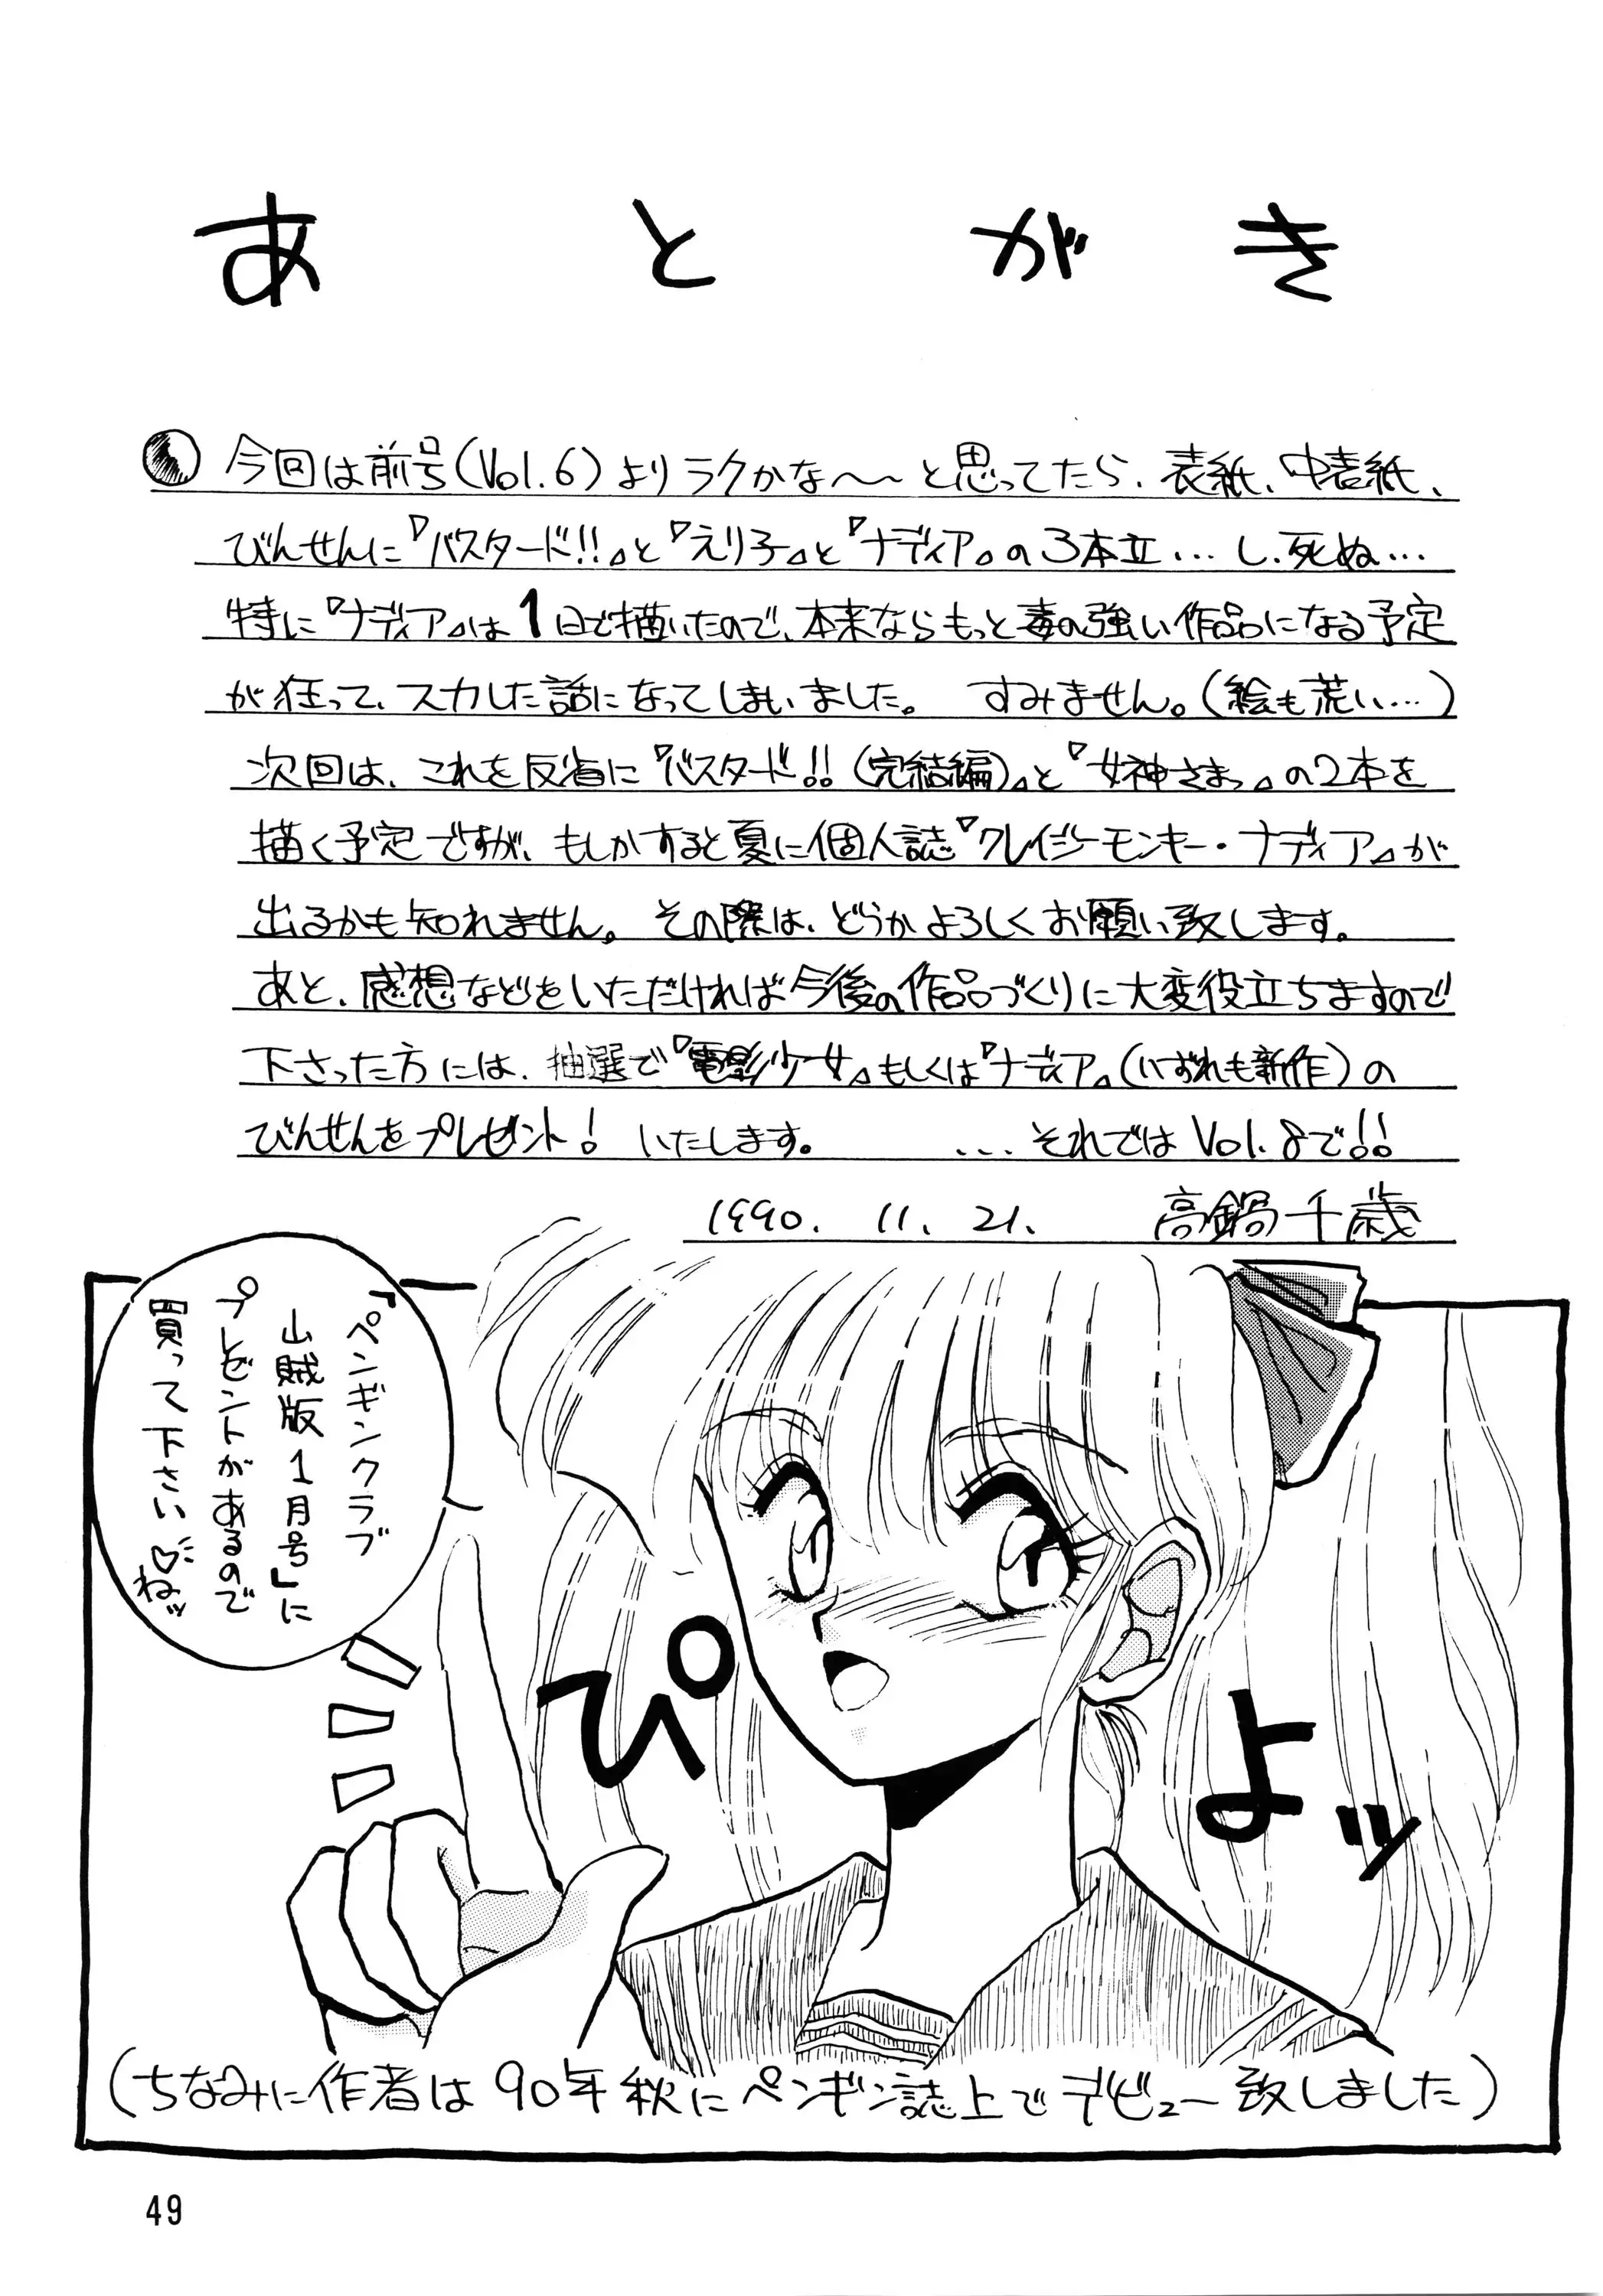 あとがき
今回は前号(Vol.6)よりラクかな〜〜と思ってたら、表紙、中表紙、
びんせんに『バスタード!!』と『えり子』と『ナディア』の3本立…し、死ぬ…
特に『ナディア』は1日で描いたので、本来ならもっと毒の強い作品になる予定
が狂って、スカした話になってしまいました。 すみません。(絵も荒い…)
次回は、これを反省に『バスタード!!(完結編)』と『女神さまっ』の2本を
描く予定ですが、もしかすると夏に個人誌『クレイジーモンキー・ナディア』が
出るかも知れません。その際は、どうかよろしくお願い致します。
あと、感想などをいただければ今後の作品づくりに大変役立ちますので
下さった方には、抽選で『電影少女』もしくは『ナディア』(いずれも新作)の
びんせんをプレゼント! いたします。 ...それではVol.8で!!
1990. 11. 21. 高鍋千歳
『ペンギンクラブ
山賊版1月号』に
プレゼントがあるので
買って下さい♡
ねッ
ぴ
よッ
(ちなみに作者は90年秋にペンギン誌上でデビュー致しました)
49